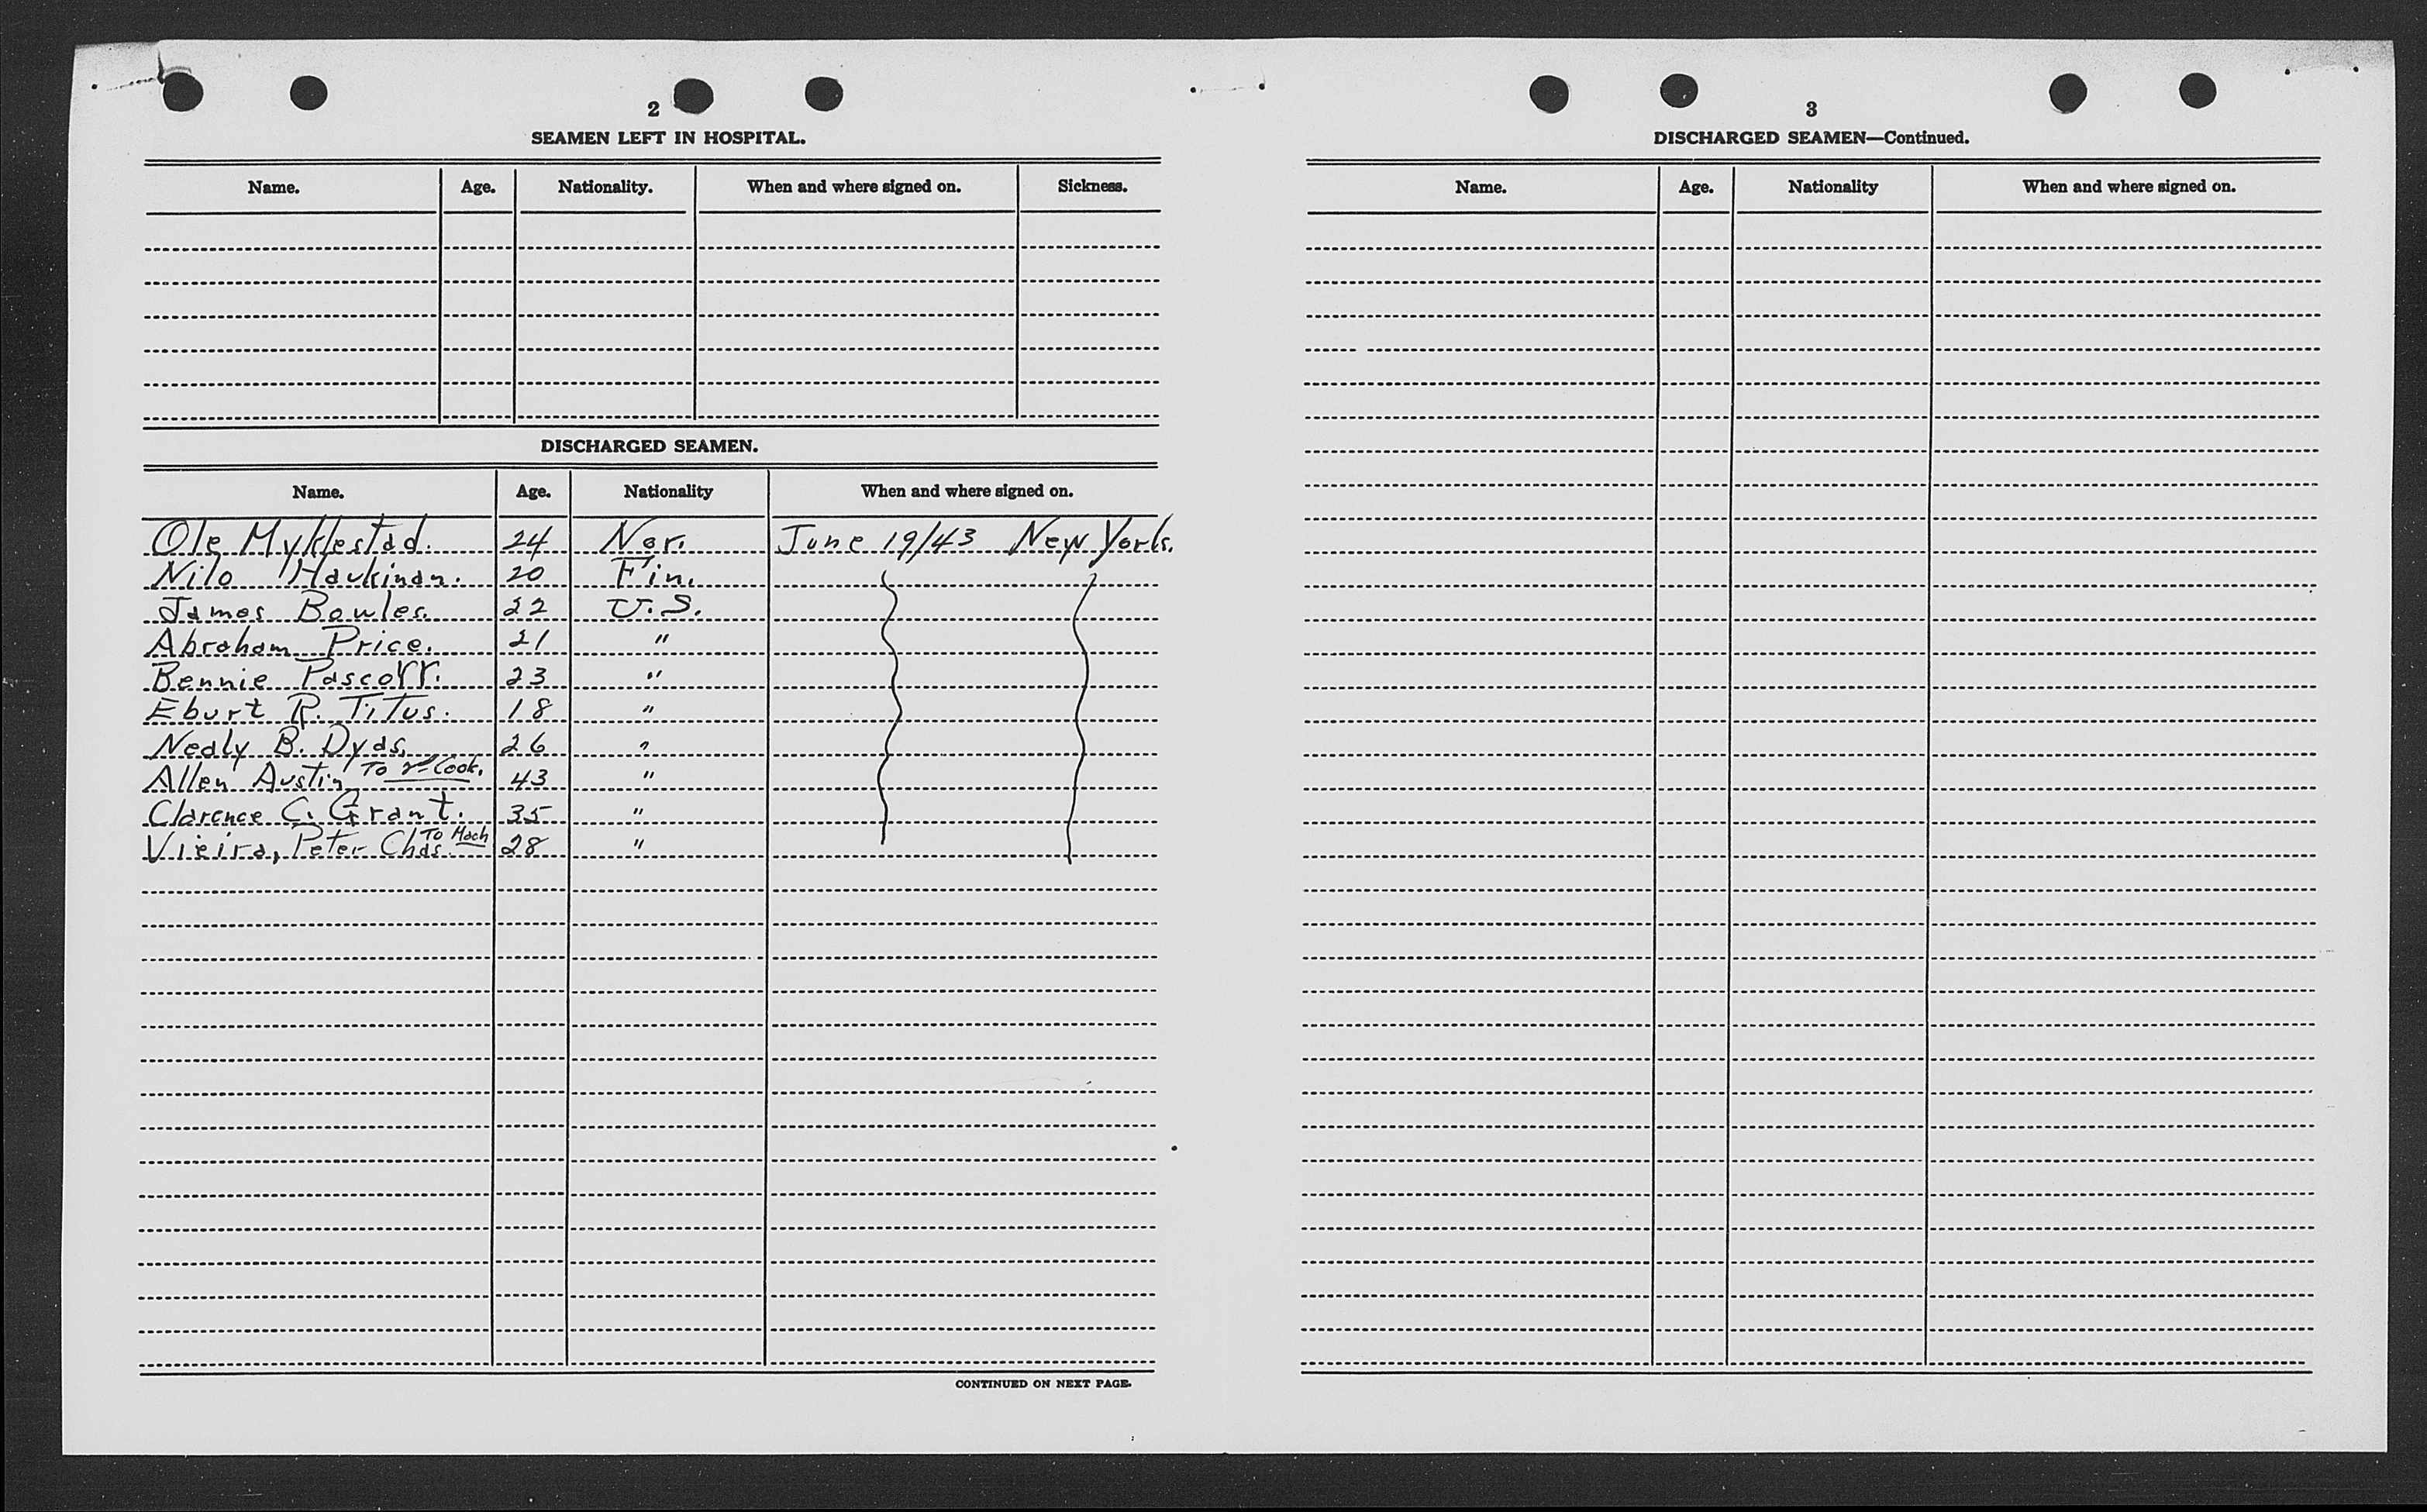 2
SEAMEN LEFT IN HOSPITAL.
Name. Age. Nationality. When and where signed on. Sickness.
DISCHARGED SEAMEN.
Name. Age. Nationality When and where signed on.
Ole Myklestad. 24 Nor. June 19/43 New York.
Nilo 20 Fin.
James Bowles. 22 U.S.
Abraham Price. 21 "
Bennie 23 "
Eburt R. Titus. 18 "
Nealy B. Dyas. 26 "
Allen Austin To 2nd Cook. 43 "
Clarence C. Grant. 35 "
Vieira, Peter Chas. To Mach 28 "
CONTINUED ON NEXT PAGE.
3
DISCHARGED SEAMEN—Continued.
Name. Age. Nationality When and where signed on.